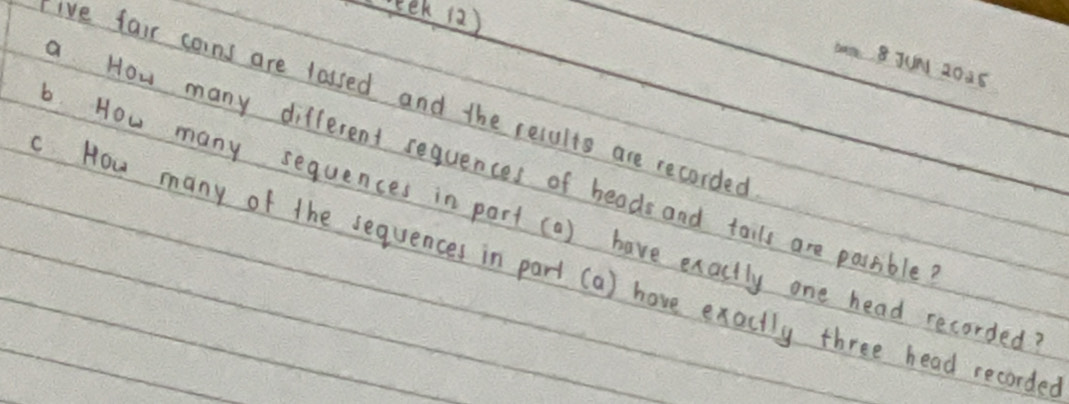 12)
8 JUN 2025
Five fair coins are tossed and the results are recorded.
a. How many different sequences of heads and tails are possible?
b. How many sequences in part (a) have exactly one head recorded?
c. How many of the sequences in part (a) have exactly three head recorded